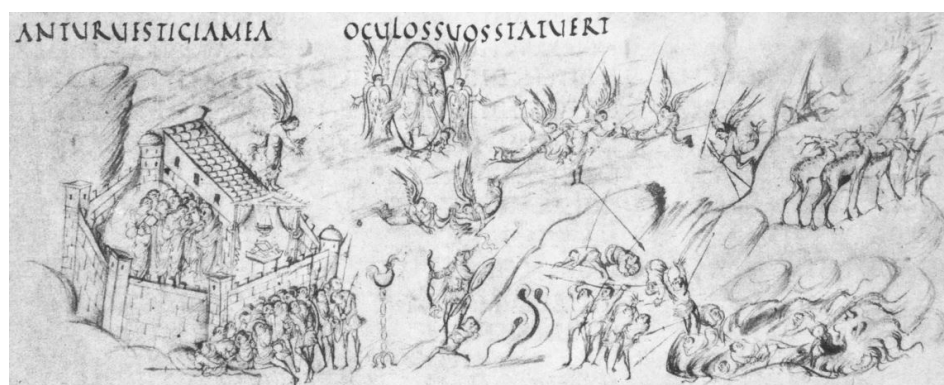 ANTURUESTIGIAMEA
OCULOSSUOSSTATUERT